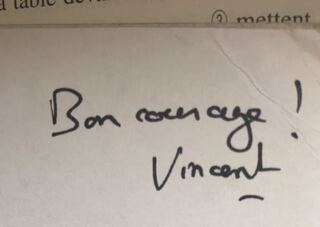 a table
② mettent
Bon courage !
Vincent